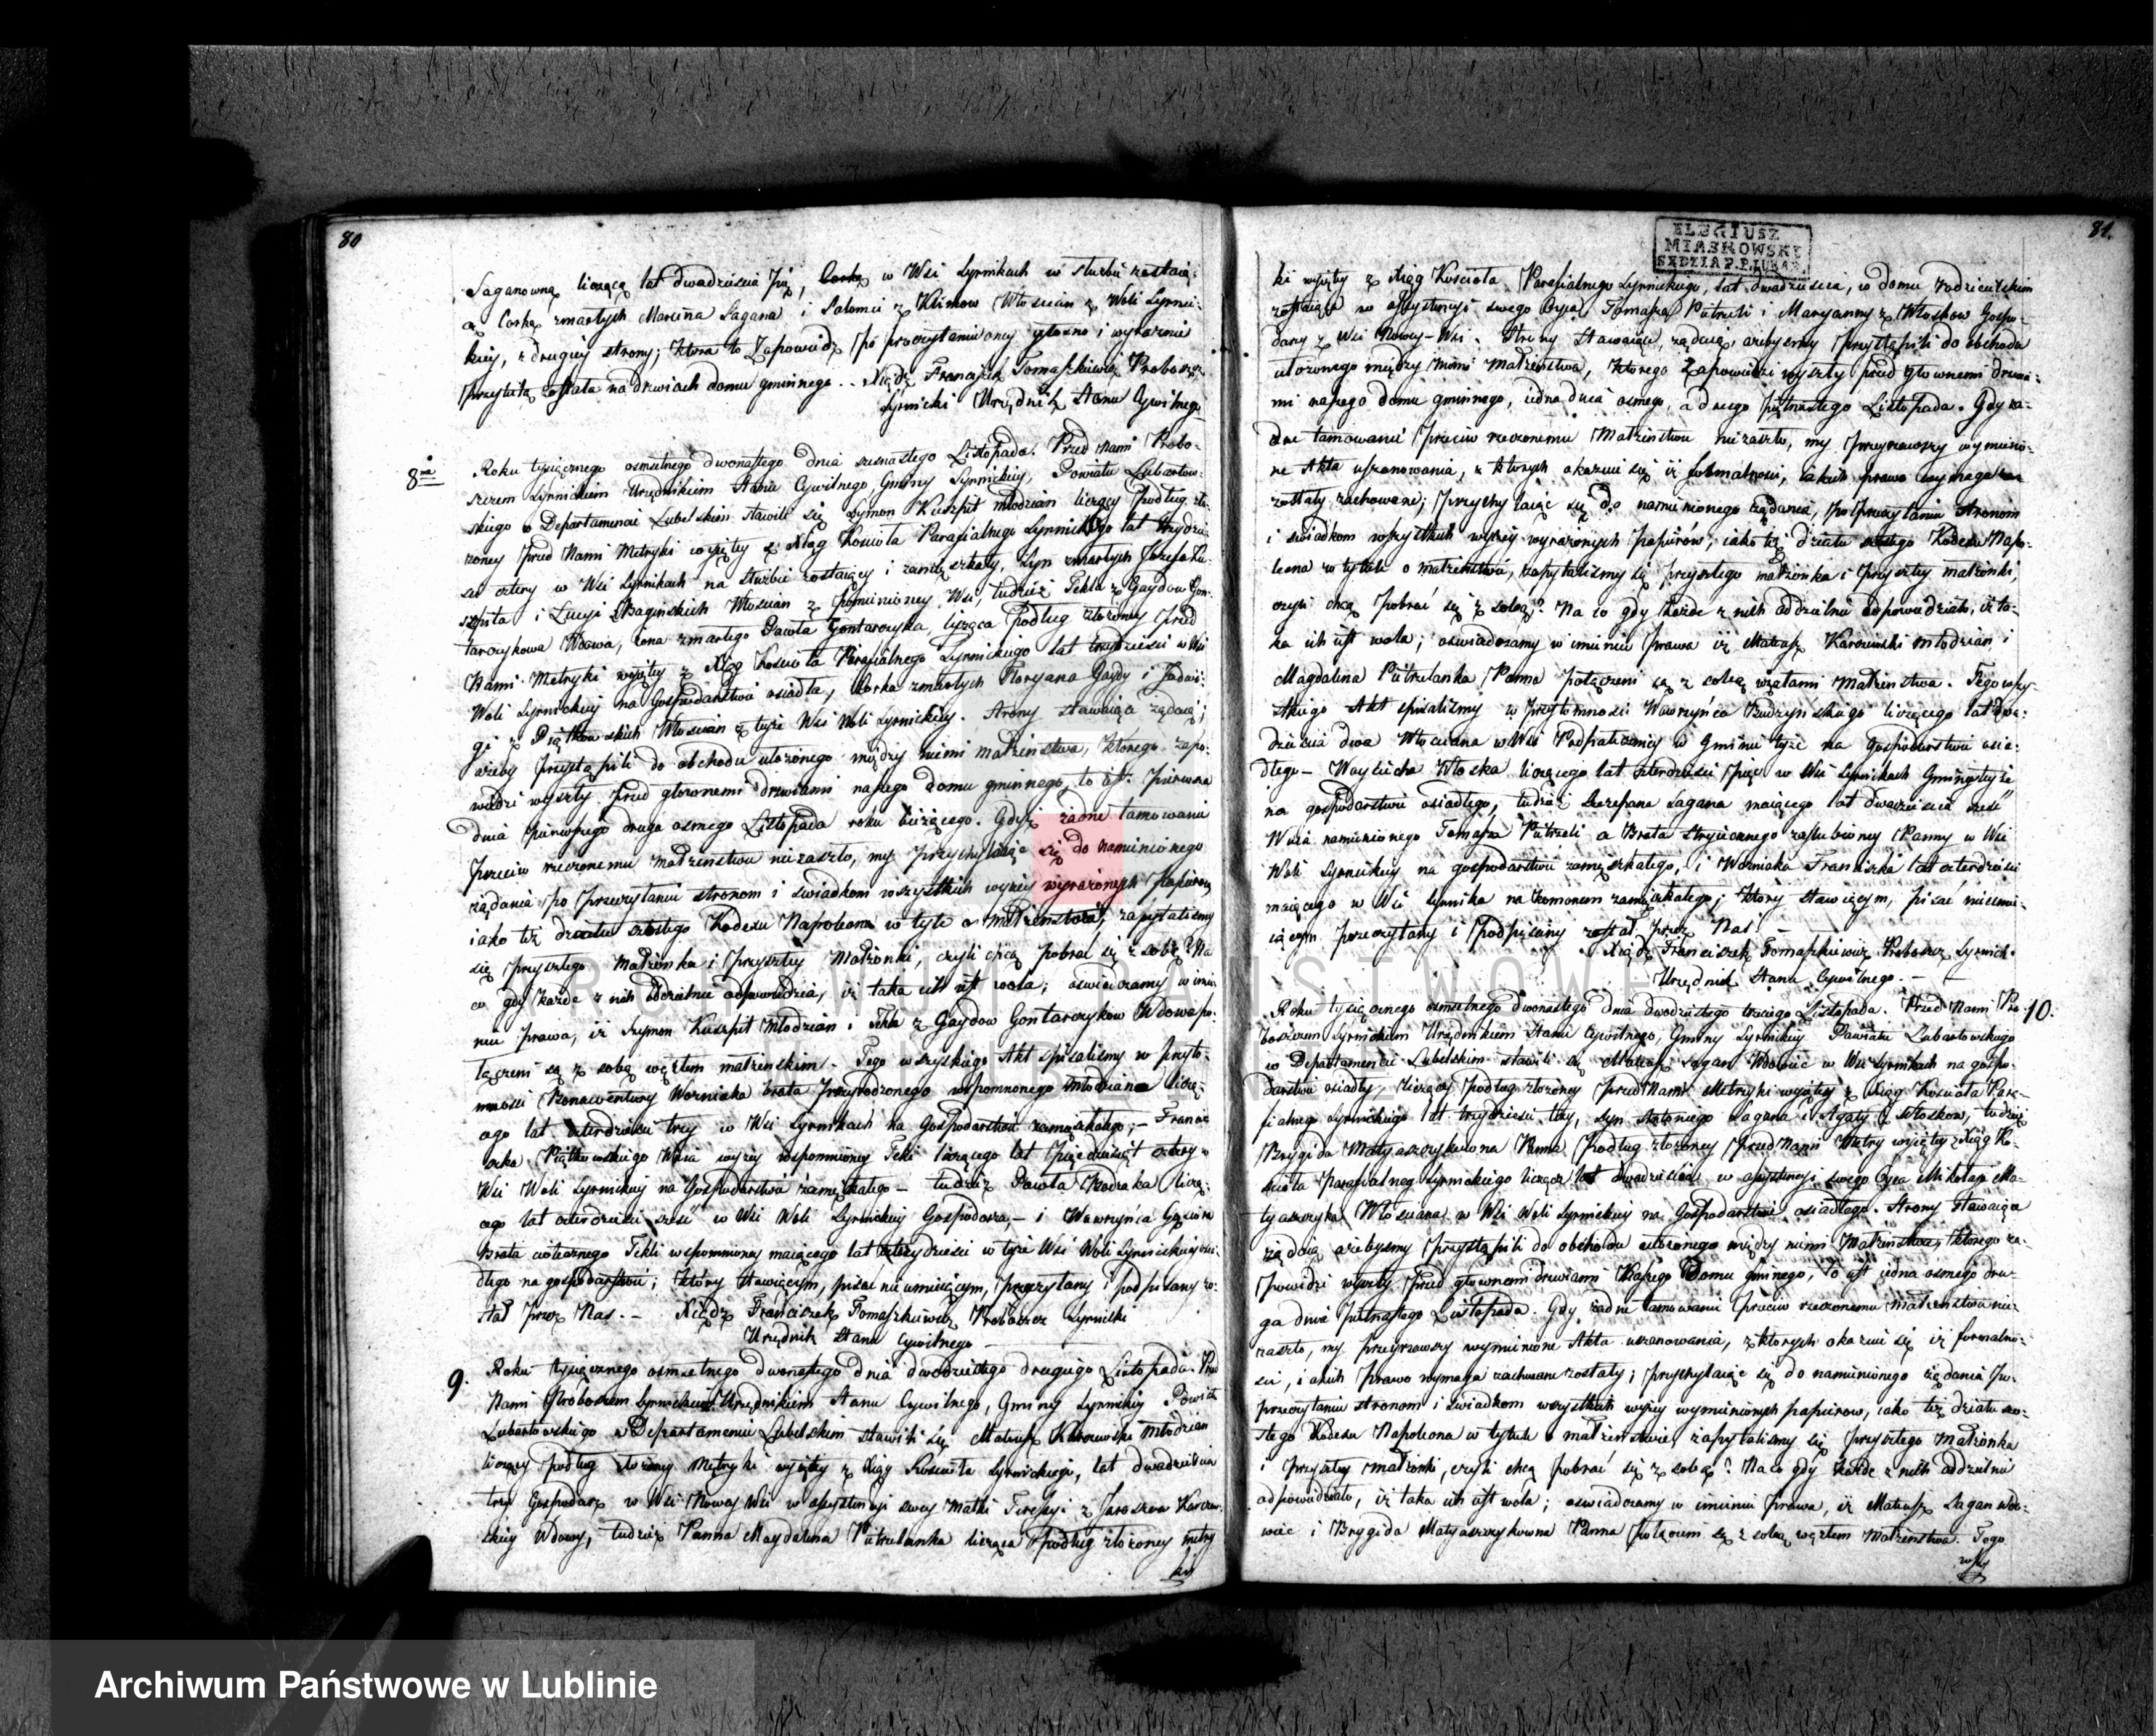 80
Saganowną liczącą lat dwadzieścia pię, w Wsi Syrnikach w służbie zostaią-
cą Corkę zmarłych Marcina Sagana i Salomei z Klimow Włościan z Woli Syrnic-
kiey, z drugiey strony; ktora to Zapowiedź po przeczytaniu oney głosno i wyraznie
przybitą została na drzwiach domu gminnego. Xiądz Franciszek Tomaszkiewicz Proboszcz
Syrnicki Urzędnik Stanu Cywilnego
8
Roku tysiącznego osmsetnego dwonastego dnia szesnastego Listopada. Przed Nami Probo-
szczem Syrnickim Urzędnikiem Stanu Cywilnego Gminy Syrnickiey, Powiatu Lubartow-
skiego w Departamencie Lubelskim stawili się Szymon Kuszpit młodzian liczący podług zło-
zoney przed Nami Metryki wyjętey z Xiąg Kościoła Parafialnego Syrnickiego lat trzydzie-
sci cztery w Wsi Syrnikach na służbie zostaiący i zamięszkały, Syn zmarłych Jozefa Ku-
szpita i Lucyi z Baginskich Włościan z pomienioney Wsi, tudzież Tekla z Gaydow Gon-
tarczykowa Wdowa, żona zmarłego Pawła Gontarczyka, licząca podług złożoney przed
Nami Metryki wyiętey z Xiąg Kościoła Parafialnego Syrnickiego lat trzydzieści w Wsi
Woli Syrnickiey na Gospodarstwie osiadła, Corka zmarłych Floryana Gaydy i Jadwi-
gi z Piątkowskich Włościan z teyże Wsi Woli Syrnickiey. Strony stawaiące żądaią,
ażeby przystąpili do obchodu ułożonego między niemi małżeństwa, ktorego zapo-
wiedzi wyszły przed głownemi drzwiami naszego domu gminnego, to iest: pierwsza
dnia pierwszego druga osmego Listopada roku bieżącego. Gdy żadne tamowanie
przeciw rzeczonemu małżenstwu niezaszło, my przychylaiąc się do namienionego
żądania po przeczytaniu stronom i swiadkom wszystkich wyżey wyrażonych papierow
iako też działu szostego Kodexu Napoleona w tytule o małżenstwie, zapytalismy
się przyszłego Małżonka i przyszłey Małżonki, czyli chcą pobrać się z sobą? Na
co gdy każde z nich oddzielnie odpowiedzia, iż taka ich iest wola; oswiadczamy w imie-
niu prawa, iż Szymon Kuszpit Młodzian i Tekla z Gaydow Gontarczykow Wdowa po-
łączeni są z sobą węzłem małżenskim. Tego wszystkiego Akt spisalismy w przyto-
mnosci Bonawentury Wozniaka brata przyrodzonego wspomnonego młodziana liczą-
cego lat czterdziesci trzy w Wsi Syrnikach na Gospodarstwie zamięszkałego; – Franci-
szka Piątkowskiego Wuia wyżey wspomnioney Tekli liczącego lat pięcdziesiąt cztery w
Wsi Woli Syrnickiey na Gospodarstwie zamięszkałego – tudzież Pawła Kodraka liczą-
cego lat czterdziesci szesć w Wsi Woli Syrnickiey Gospodarza, – i Wawrzyńca
Brata ciotecznego Tekli wspomnioney maiącego lat czterydzieści w teyże Wsi Woli Syrnickiey osia-
dłego na gospodarstwie; ktory stawiącym, pisac nie umieiącym, przeczytany i podpisany zo-
stał przez Nas. – Xiądz Franciszek Tomaszkiewicz Proboszcz Syrnicki
Urzędnik Stanu Cywilnego –
9.
Roku tysiącznego osmsetnego dwonastego dnia dwodziestego drugiego Listopada. Przed
Nami Proboszczem Syrnickim Urzędnikiem Stanu Cywilnego, Gminy Syrnickiey Powiatu
Lubartowskiego w Departamencie Lubelskim stawili się Mateusz Karczewski młodzian
liczący podług złożoney Metryki wyiętey z Xiąg Kościoła Syrnickiego, lat dwadzieścia
trzy Gospodarz w Wsi Nowey Wsi w assystencyi swey Matki Teressy z Jaroszow Karczew-
skiey Wdowy, tudzież Panna Magdalena Pietrzelanka licząca podług złożoney metry
ki
81.
ELEGIUSZ
MIASKOWSKI
SĘDZIA P.P. LUBAR.
ki wyiętey z Xiąg Kościoła Parafialnego Syrnickiego, lat dwadzieścia, w domu rodzicielskim
zostaiąca w assystencyi swego Oyca Tomasza Pietrzeli i Maryanny z Włoskow Gospo-
darzy z Wsi Nowey-Wsi. Strony stawaiące, żądaią, ażebysmy przystąpili do obchodu
ułożonego między niemi Małżenstwa, ktorego Zapowiedzi wyszły przed głownemi drzwia-
mi naszego domu gminnego, iedna dnia osmego, a druga piętnastego Listopada. Gdy ża-
dne tamowanie przeciw rzeczonemu Małżenstwu niezaszło, my przeyrzawszy wymienio-
ne Akta uszanowania, z ktorych okazuie się iż formalnosci, iakich prawo wymaga
zostały zachowane; przychylaiąc się do namienionego żądania, po przeczytaniu stronom
i swiadkom wszystkich wyżey wyrażonych papierów, iako też działu szostego Kodexu Napo-
leona w tytule o małżenstwie, zapytalismy się przyszłego małżonka i przyszłey małżonki,
czyli chcą pobrać się z sobą? Na co gdy każde z nich oddzielnie odpowiedziało, iż ta-
ka ich iest wola; oswiadczamy w imieniu prawa iż Mateusz Karczewski młodzian i
Magdalena Pietrzelanka Panna połączeni są z sobą węzłami Małżenstwa. Tego wszy-
stkiego Akt spisalismy w przytomnosci Wawrzyńca Budzynskiego liczącego lat dwa-
dzieścia dwa Włościana w Wsi Podpałecznicy w Gminie teyże na Gospodarstwie osia-
dłego – Woyciecha Włoska liczącego lat czterdzieści pięć w Wsi Syrnikach Gminy teyże
na gospodarstwie osiadłego, tudzież Szczepana Sagana maiącego lat dwadzieścia sześć
Wuia namienionego Tomasza Pietrzeli a Brata stryiecznego zaślubioney Panny w Wsi
Woli Syrnickiey na gospodarstwie zamięszkałego, i Wozniaka Franciszka lat czterdzieści
maiącego w Wsi Syrnika na Ekonomem zamięszkałego; ktory stawiącym, pisać nieumie-
iącym przeczytany i podpisany został przez Nas. –
Xiądz Franciszek Tomaszkiewicz Proboszcz Syrnick.
Urzędnik Stanu Cywilnego. –
10.
Roku tysiącznego osmsetnego dwonastego dnia dwodziestego trzeciego Listopada. Przed Nami Pro-
boszczem Syrnickim Urzędnikiem Stanu Cywilnego, Gminy Syrnickiey Powiatu Lubartowskiego
w Departamencie Lubelskim stawili się Mateusz Sagan Wdowiec w Wsi Syrnikach na gospo-
darstwie osiadły, liczący podług złożoney przed Nami Metryki wyiętey z Xiąg Kościoła Para-
fialnego Syrnickiego lat trzydzieści trzy, syn Antoniego Sagana i Agaty z Włoskow, tudzież
Brygida Matyaszczykowna Panna podług złożoney przed Nami Metry wyiętey z Xiąg Ko-
scioła Parafialneg Syrnickiego licząca lat dwadzieścia w assystencyi swego Oyca Mikołaja Ma-
tyaszczyka Włościana w Wsi Woli Syrnickiey na Gospodarstwie osiadłego. Strony stawaiące
żądaią ażebysmy przystąpili do obchodu ułożonego między niemi Małżenstwa, ktorego za-
powiedzi wyszły przed głownemi drzwiami Naszego Domu gminego, to iest iedna osmego dru-
ga dnia piętnastego Listopada. Gdy żadne tamowanie przeciw rzeczonemu małżenstwu nie-
zaszło, my przeyrzawszy wymienione Akta uszanowania, z ktorych okazuie się iż formalno-
sci, iakich Prawo wymaga zachowane zostały; przychylaiąc się do namienionego żądania po
przeczytaniu stronom i swiadkom wszystkich wyżey wymienionych papierow, iako też działu szo-
stego Kodexu Napoleona w tytule o małżenstwie, zapytalismy się przyszłego Małżonka
i przyszłey małżonki, czyli chcą pobrać się z sobą? Na co gdy każde z nich oddzielnie
odpowiedziało, iż taka ich iest wola; oswiadczamy w imieniu prawa, iż Mateusz Sagan Wdo-
wiec i Brygida Matyaszczykowna Panna połączeni są z sobą węzłem Małżenstwa. Tego
wszy
ARCHIWUM PAŃSTWOWE
W LUBLINIE
Archiwum Państwowe w Lublinie